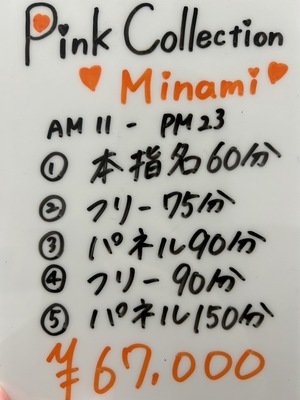 Pink Collection
Minami
AM 11 - PM 23
① 本指名60分
② フリー75分
③ パネル90分
④ フリー90分
⑤ パネル150分
¥67.000